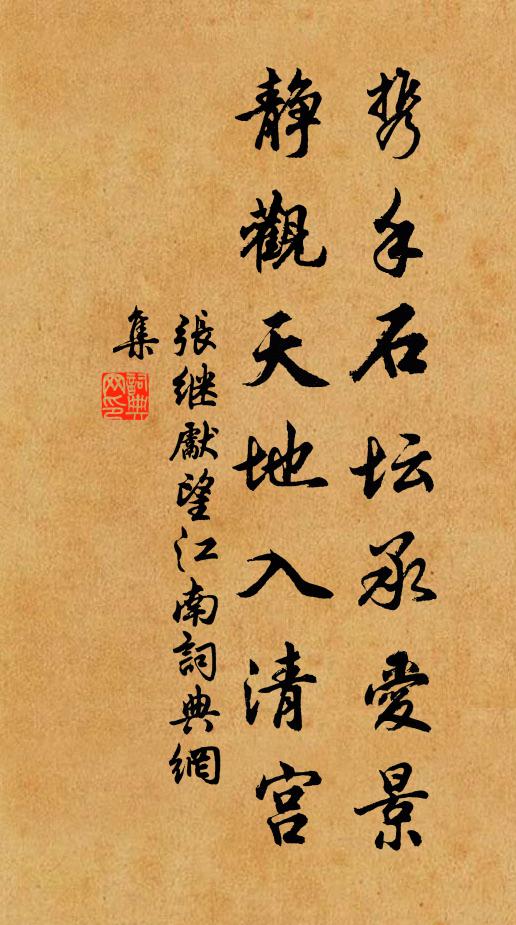 携手石坛承爱景
静觀天地入清宫
張继獻望江南詞典網
集
詞典网印